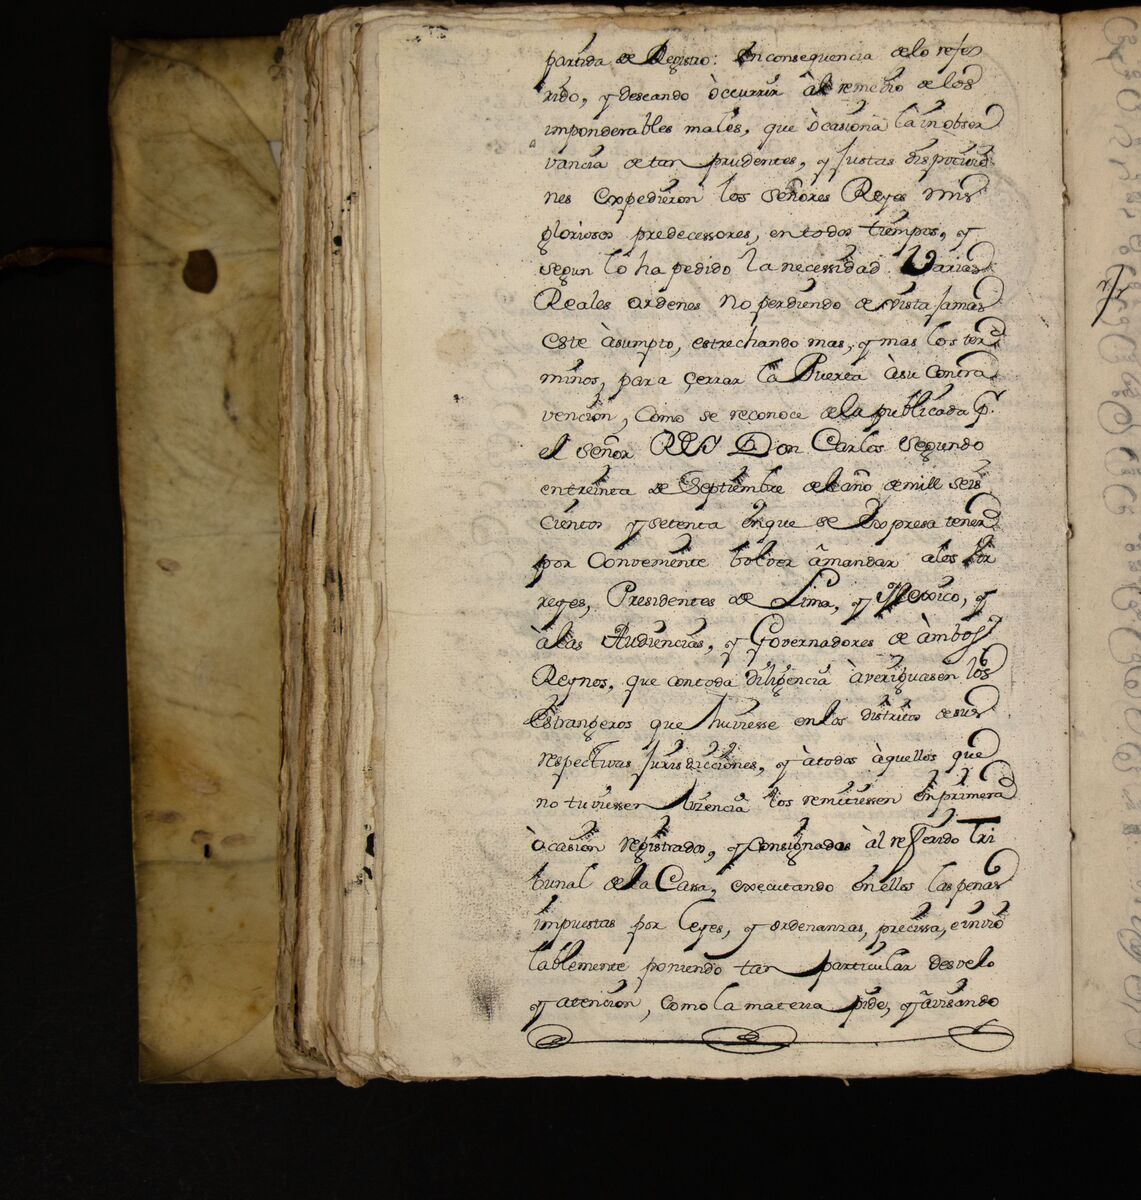 partida de Registro: En consequencia de lo refe
rido, y deseando òccurrir àl remedio de los
imponderables males, que òcasiona là in obser
vancia de tan prudentes, y justas dispocicio
nes Expedieron los señores Reyes mis
gloriosos predecessores, en todos tiempos, y
segun lo ha pedido la necessidad Varias
Reales ordenes no perdiendo de vista jamas
este àsumpto, estrechando mas, y mas los ter
minos, para çerrar la Puerta àsu Contra
vencion, Como se reconoce de la publicada p.r
el señor REY Don Carlos Segundo
en treinta de Septiembre de el año de mill seis
cientos y setenta en que se Expresa tener
por Conveniente bolver à mandar a los Vir
reyes, Presidentes de Lima, y Mexico, y
à las Audiencias, y Governadores de àmbos
Reynos, que con toda diligencia àveriguasen los
Estrangeros que huviesse en los distritos de sus
respectivas Jurisdicciones, y àtodos àquellos que
no tuviessen Lizencia los remitiessen en primera
òcasion registrados, y Consignados àl refferido Tri
bunal de la Cassa, executando en ellos las penas
impuestas por Leyes, y ordenanzas, precissa, e invio
lablemente poniendo tan particular desvelo
y atencion, Como la materia pide, y àvisando